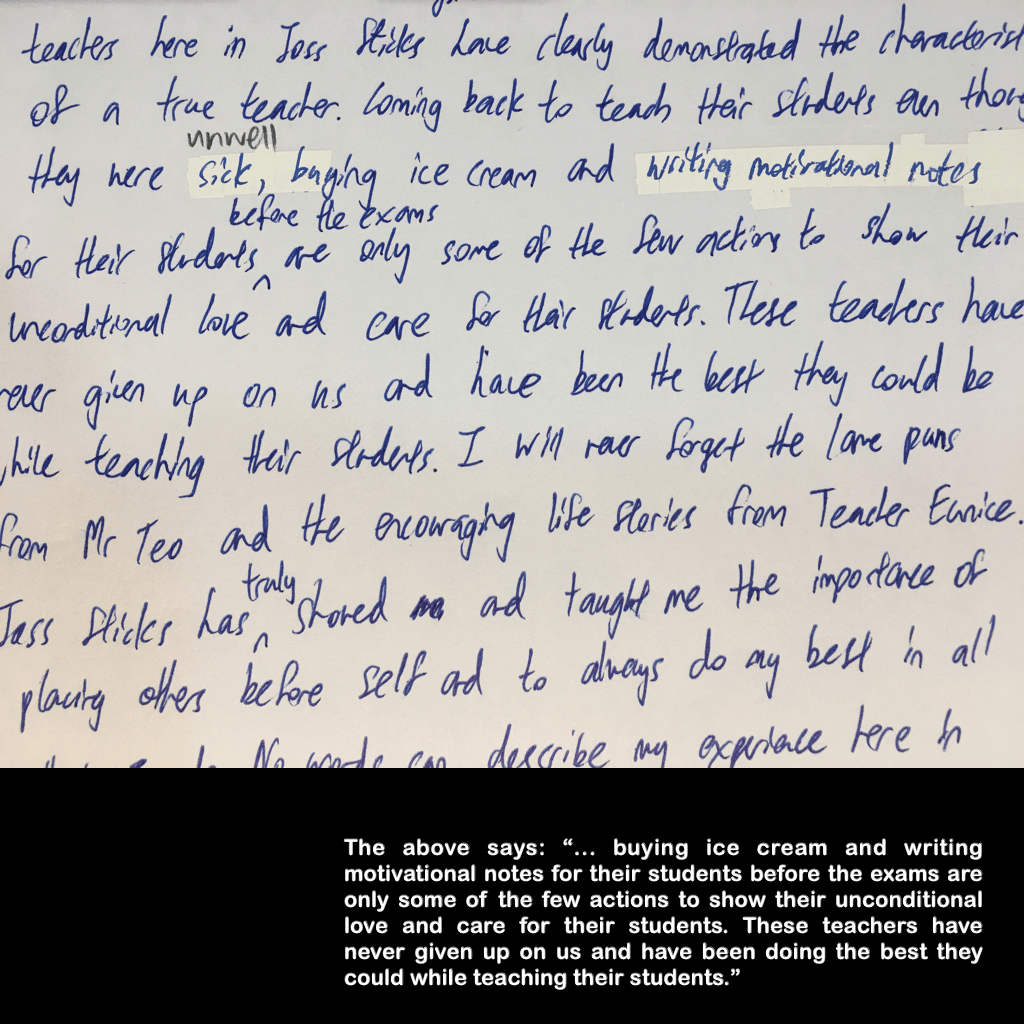 teachers here in Joss Sticks have clearly demonstrated the characterist
of a true teacher. Coming back to teach their students even thoug
unwell
they were sick, buying ice cream and writing motivational notes
before the exams
for their students ^ are only some of the few actions to show their
unconditional love and care for their students. These teachers have
never given up on us and have been the best they could be
while teaching their students. I will never forget the lame puns
from Mr Teo and the encouraging life stories from Teacher Eunice.
truly
Joss Sticks has ^ showed and taught me the importance of
placing others before self and to always do my best in all
No words can describe my experience here in
The above says: “... buying ice cream and writing
motivational notes for their students before the exams are
only some of the few actions to show their unconditional
love and care for their students. These teachers have
never given up on us and have been doing the best they
could while teaching their students.”